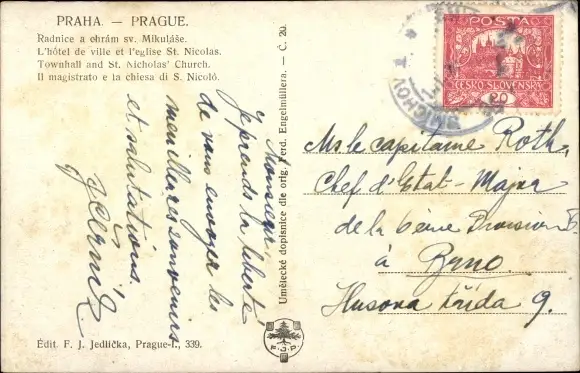 PRAHA. — PRAGUE.
Radnice a chrám sv. Mikuláše.
L'hôtel de ville et l'eglise St. Nicolas.
Townhall and St. Nicholas' Church.
Il magistrato e la chiesa di S. Nicolò.
Monsieur,
Je prends la liberté
de vous envoyer les
meilleures souvenirs
et salutations.
Édit. F. J. Jedlička, Prague-I., 339.
Umělecké dopisnice dle orig. Ferd. Engelmüllera. — Č. 20.
F.J.P.
POSTA
ČESKO-SLOVENSKÁ
20
SMÍCHOV
Ms le capitaine Roth,
Chef d'Etat-Major
de la 6ème Division
à Brno.
Husova třída 9.